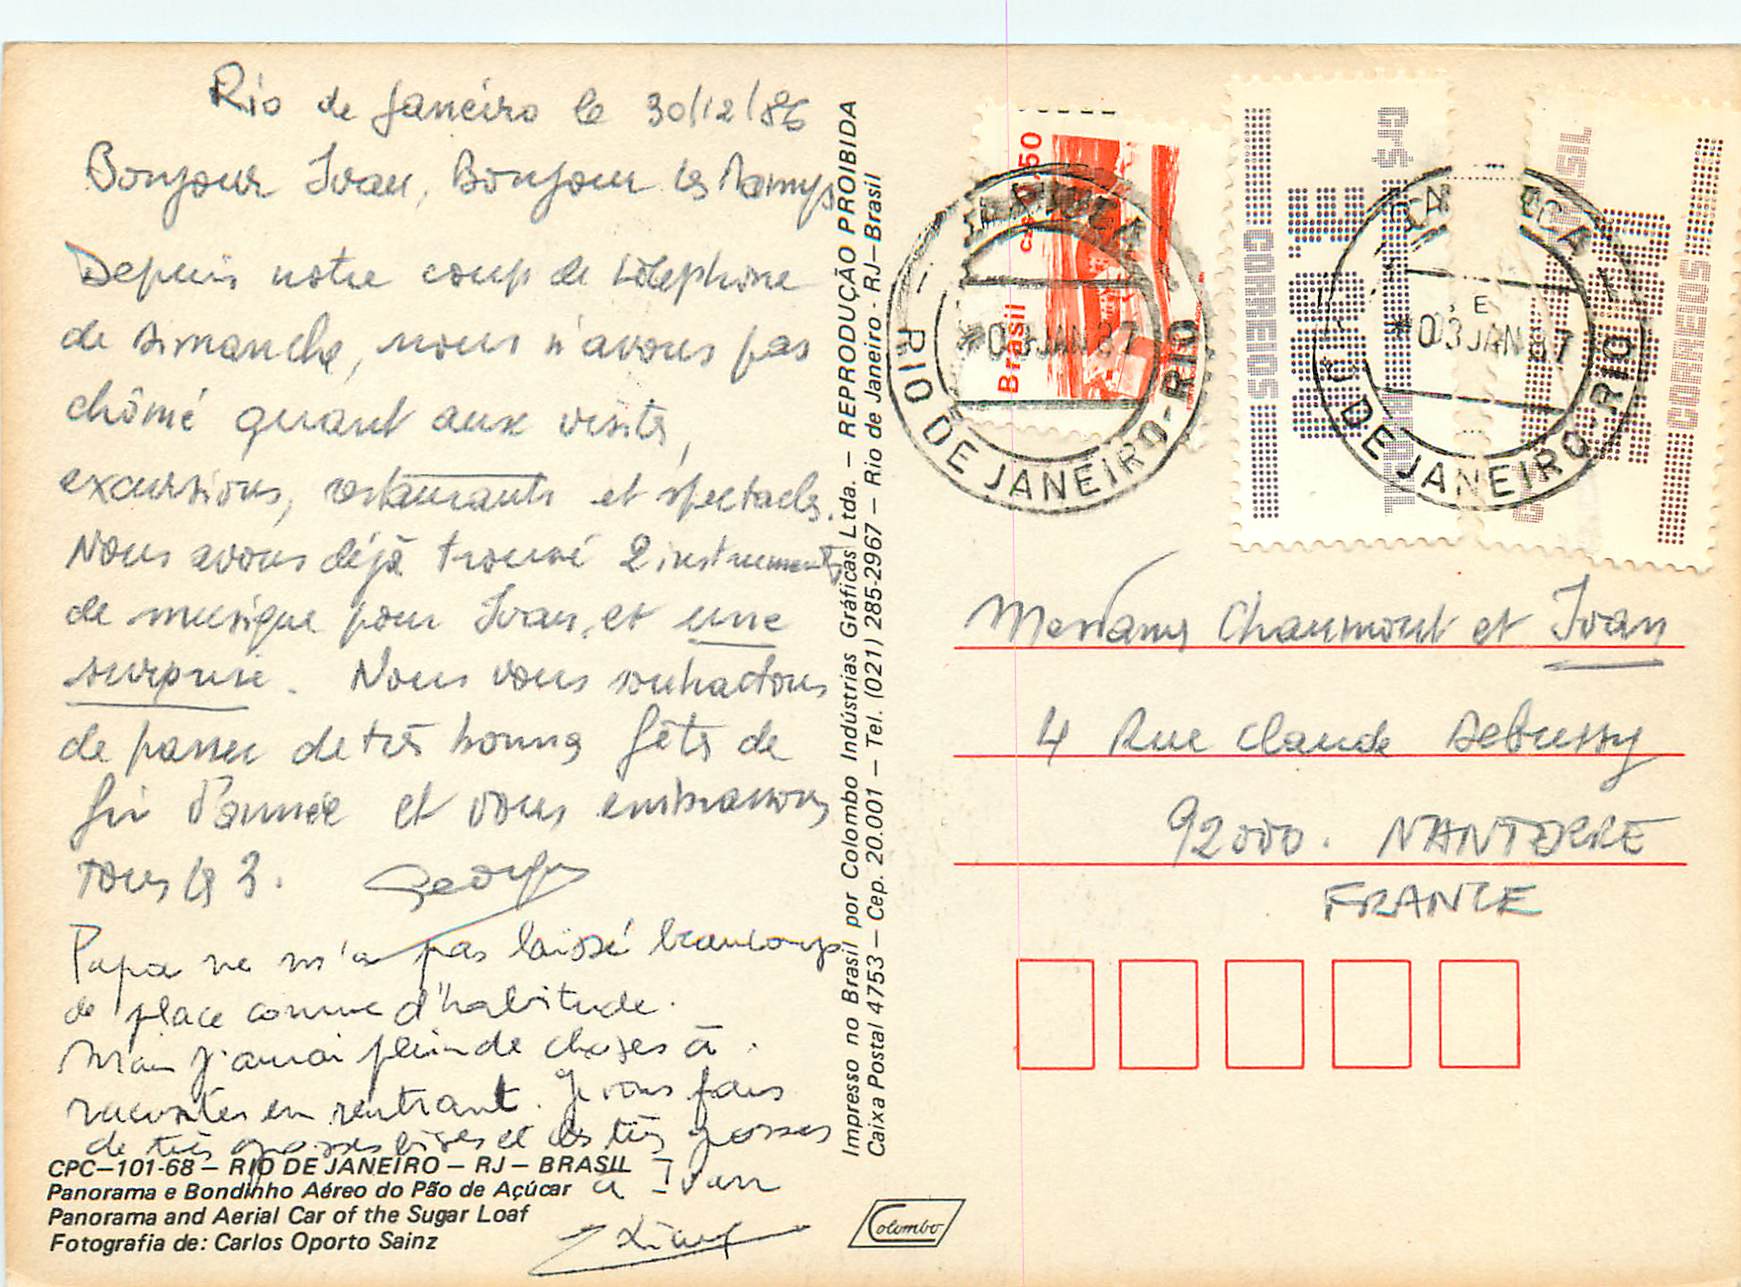 Rio de Janeiro le 30/12/86
Bonjour Ivan, Bonjour les Mamys
Depuis notre coup de téléphone
de dimanche, nous n'avons pas
chômé quant aux visites,
excursions, restaurants et spectacles.
Nous avons déjà trouvé 2 instruments
de musique pour Ivan, et une
surprise. Nous vous souhaitons
de passer de très bonnes fêtes de
fin d'année et vous embrassons
tous les 3. Georges
Papa ne m'a pas laissé beaucoup
de place comme d'habitude.
Mais j'aurai plein de choses à
raconter en rentrant. Je vous fais
de très grosses bises et des très grosses
à Ivan
CPC–101-68 – RIO DE JANEIRO – RJ – BRASIL
Panorama e Bondinho Aéreo do Pão de Açúcar
Panorama and Aerial Car of the Sugar Loaf
Fotografia de: Carlos Oporto Sainz
Impresso no Brasil por Colombo Indústrias Gráficas Ltda. – REPRODUÇÃO PROIBIDA
Caixa Postal 4753 – Cep. 20.001 – Tel. (021) 285-2967 – Rio de Janeiro - RJ–Brasil
Colombo
Brasil 50
03 JAN 87
RIO DE JANEIRO-RIO
CORREIOS
Cr$
BRASIL
03 JAN 87
RIO DE JANEIRO-RIO
BRASIL
CORREIOS
Mesdames Chaumont et Ivan
4 Rue Claude Debussy
92000. NANTERRE
FRANCE